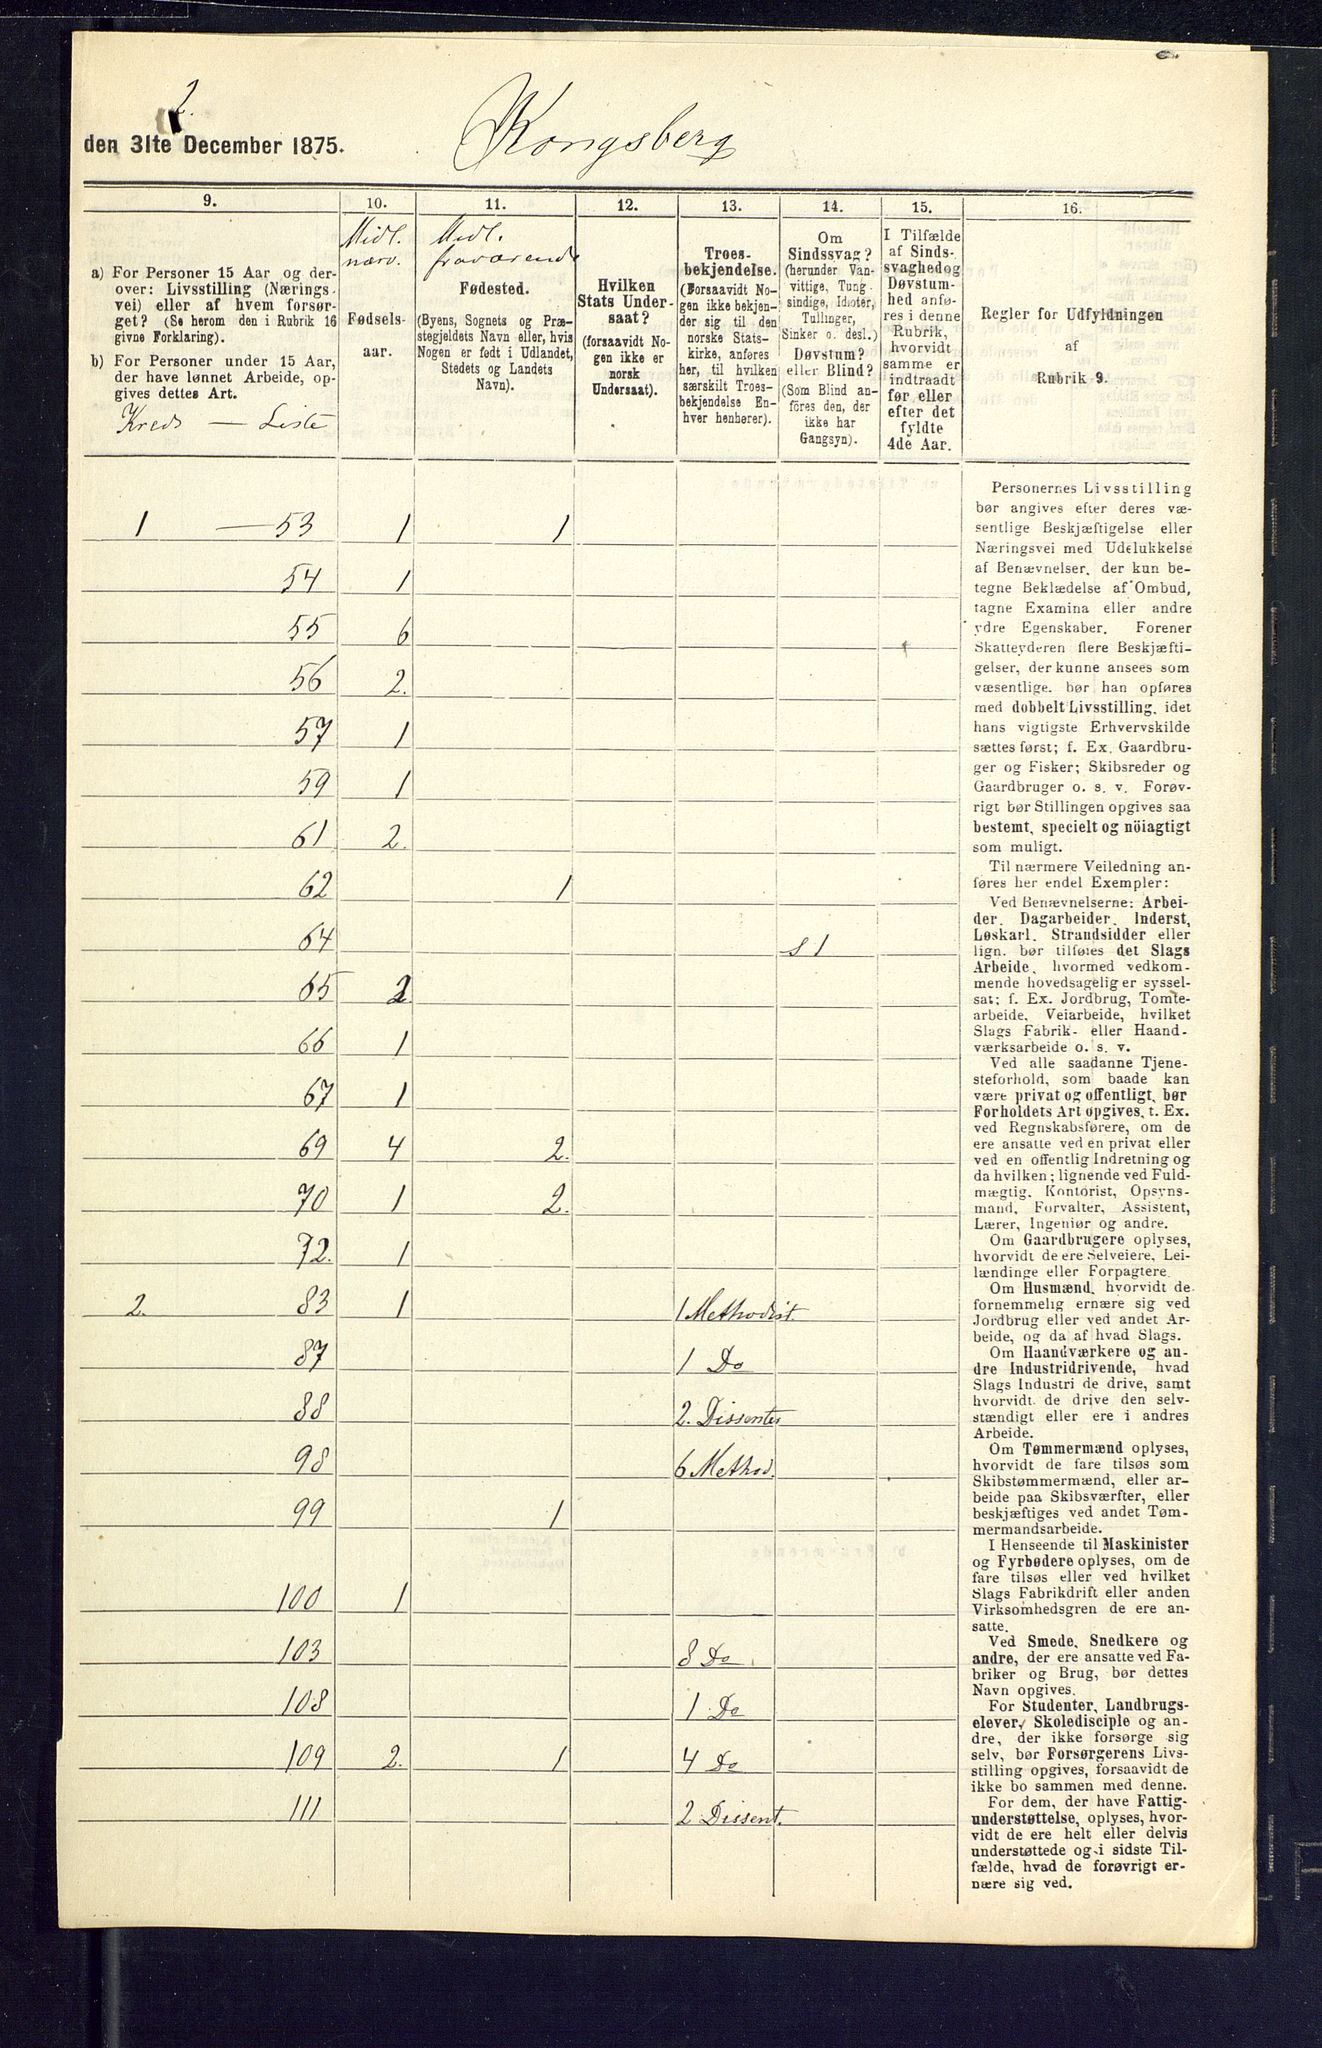 2.
den 31te December 1875.
Kongsberg
9. 10. 11. 12. 13. 14. 15. 16.
a) For Personer 15 Aar og der-
over: Livsstilling (Nærings-
vei) eller af hvem forsør-
get? (Se herom den i Rubrik 16
givne Forklaring).
b) For Personer under 15 Aar,
der have lønnet Arbeide, op-
gives dettes Art.
Kreds — Liste
Midl.
nærv.
Fødsels-
aar.
Midl.
fraværende
Fødested.
(Byens, Sognets og Præ-
stegjeldets Navn eller, hvis
Nogen er født i Udlandet,
Stedets og Landets
Navn).
Hvilken
Stats Under-
saat?
(forsaavidt No-
gen ikke er
norsk
Undersaat).
Troes-
bekjendelse.
(Forsaavidt No-
gen ikke bekjen-
der sig til den
norske Stats-
kirke, anføres
her, til hvilken
særskilt Troes-
bekjendelse En-
hver henhører).
Om
Sindssvag?
(herunder Van-
vittige, Tung-
sindige, Idioter,
Tullinger,
Sinker o. desl.)
Døvstum?
eller Blind?
(Som Blind an-
føres den, der
ikke har
Gangsyn).
I Tilfælde
af Sinds-
svaghed og
Døvstum-
hed anfø-
res i denne
Rubrik,
hvorvidt
samme er
indtraadt
før eller
efter det
fyldte
4de Aar.
Regler for Udfyldningen
af
Rubrik 9.
1 — 53 1 1
54 1
55 6
56 2.
57 1
59 1
61 2.
62 1
64 S 1
65 2
66 1
67 1
69 4 2.
70 1 2.
72. 1
2. 83 1 1 Methodist.
87 1 Do
88 2. Dissenter
98 6 Method.
99 1
100 1
103 8 Do
108 1 Do
109 2. 1 4 Do
111 2 Dissent.
Personernes Livsstilling
bør angives efter deres væ-
sentlige Beskjæftigelse eller
Næringsvei med Udelukkelse
af Benævnelser, der kun be-
tegne Beklædelse af Ombud,
tagne Examina eller andre
ydre Egenskaber. Forener
Skatteyderen flere Beskjæfti-
gelser, der kunne ansees som
væsentlige, bør han opføres
med dobbelt Livsstilling, idet
hans vigtigste Erhvervskilde
sættes først; f. Ex. Gaardbru-
ger og Fisker; Skibsreder og
Gaardbruger o. s. v. Forøv-
rigt bør Stillingen opgives saa
bestemt, specielt og nöiagtigt
som muligt.
Til nærmere Veiledning an-
føres her endel Exempler:
Ved Benævnelserne: Arbei-
der, Dagarbeider, Inderst,
Løskarl, Strandsidder eller
lign. bør tilføies det Slags
Arbeide, hvormed vedkom-
mende hovedsagelig er syssel-
sat; f. Ex. Jordbrug, Tomte-
arbeide, Veiarbeide, hvilket
Slags Fabrik- eller Haand-
værksarbeide o. s. v.
Ved alle saadanne Tjene-
steforhold, som baade kan
være privat og offentligt, bør
Forholdets Art opgives, t. Ex.
ved Regnskabsførere, om de
ere ansatte ved en privat eller
ved en offentlig Indretning og
da hvilken; lignende ved Fuld-
mægtig, Kontorist, Opsyns-
mand, Forvalter, Assistent,
Lærer, Ingeniør og andre.
Om Gaardbrugere oplyses,
hvorvidt de ere Selveiere, Lei-
lændinge eller Forpagtere.
Om Husmænd, hvorvidt de
fornemmelig ernære sig ved
Jordbrug eller ved andet Ar-
beide, og da af hvad Slags.
Om Haandværkere og an-
dre Industridrivende, hvad
Slags Industri de drive, samt
hvorvidt de drive den selv-
stændigt eller ere i andres
Arbeide.
Om Tømmermænd oplyses,
hvorvidt de fare tilsøs som
Skibstømmermænd, eller ar-
beide paa Skibsværfter, eller
beskjæftiges ved andet Tøm-
mermandsarbeide.
I Henseende til Maskinister
og Fyrbødere oplyses, om de
fare tilsøs eller ved hvilket
Slags Fabrikdrift eller anden
Virksomhedsgren de ere an-
satte.
Ved Smede, Snedkere og
andre, der ere ansatte ved Fa-
briker og Brug, bør dettes
Navn opgives.
For Studenter, Landbrugs-
elever, Skoledisciple og an-
dre, der ikke forsørge sig
selv, bør Forsørgerens Livs-
stilling opgives, forsaavidt de
ikke bo sammen med denne.
For dem, der have Fattig-
understøttelse, oplyses, hvor-
vidt de ere helt eller delvis
understøttede og i sidste Til-
fælde, hvad de forøvrigt er-
nære sig ved.